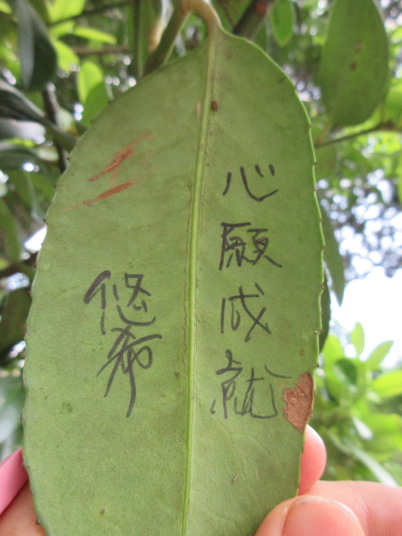 心願成就
悠希